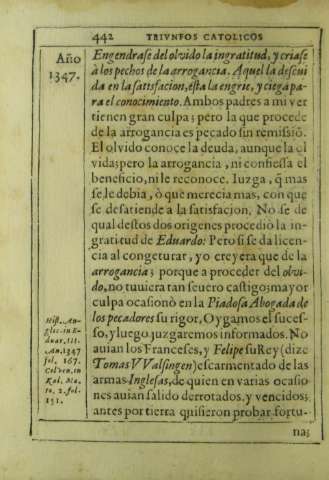 442 TRIVNFOS CATOLICOS
Año
1347.
Engendrase del olvido la ingratitud, y criase
à los pechos de la arrogancia. Aquel la descui
da en la satisfacion, esta la engrie, y ciega pa-
ra el conocimiento. Ambos padres a mi ver
tienen gran culpa; pero la que procede
de la arrogancia es pecado sin remissiõ.
El olvido conoce la deuda, aunque la ol
vida; pero la arrogancia, ni confiessa el
beneficio, ni le reconoce. Iuzga, q̃ mas
se le debia, ò què merecia mas, con que
se desatiende a la satisfacion. No se de
qual destos dos origenes procediò la in-
gratitud de Eduardo: Pero si se da licen-
cia al congeturar, yo creyera que de la
arrogancia; porque a proceder del olvi-
do, no tuuiera tan seuero castigo; mayor
culpa ocasionò en la Piadosa Abogada de
los pecadores su rigor, Oygamos el suces-
so, y luego juzgaremos informados. No
auian los Franceses, y Felipe su Rey (dize
Tomas VValsingen) escarmentado de las
armas Inglesas, de quien en varias ocasio
nes auian salido derrotados, y vencidos;
antes por tierra quisieron probar fortu-
na;
Hist. An-
glic. in E-
duar. III.
An. 1347
fol. 167.
Colven. in
Kal. Ma.
to. 2. fol.
151.